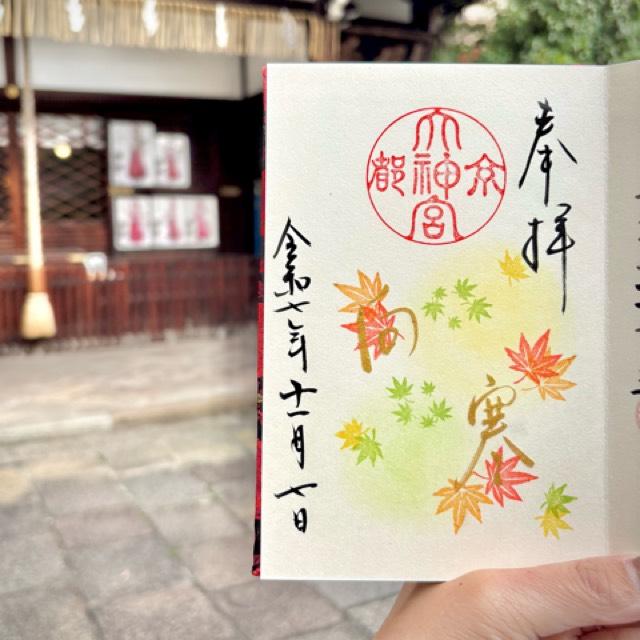 奉拝
京都大神宮
寒
令和七年十一月七日